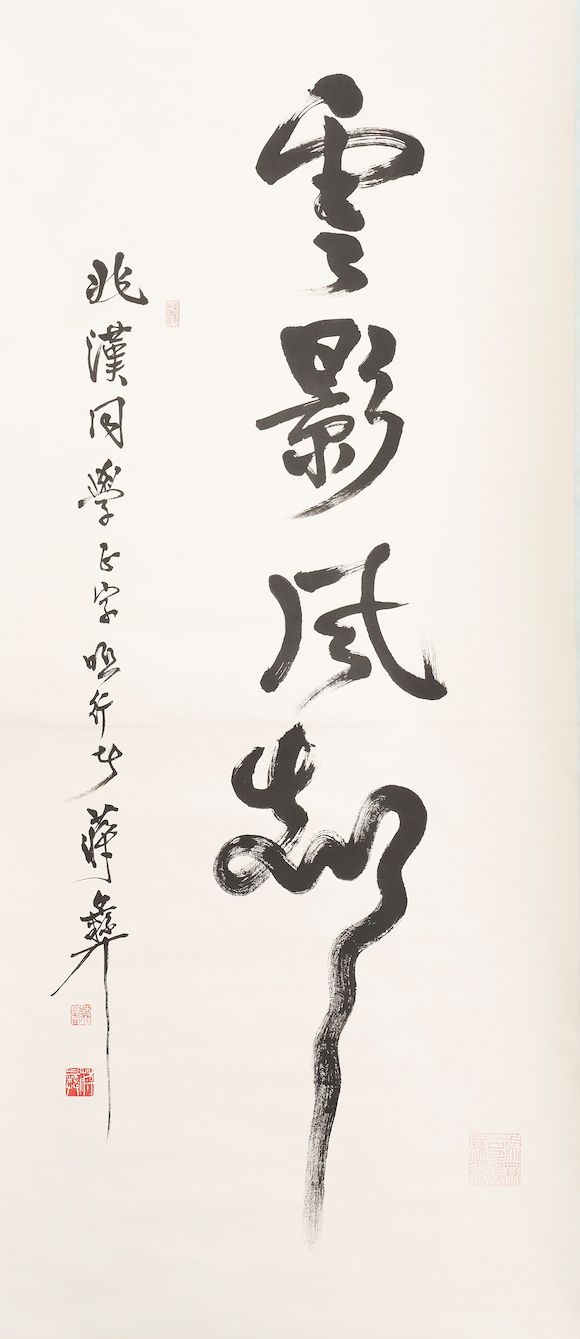 雲影風
兆漢同學正字啞行者蔣彝